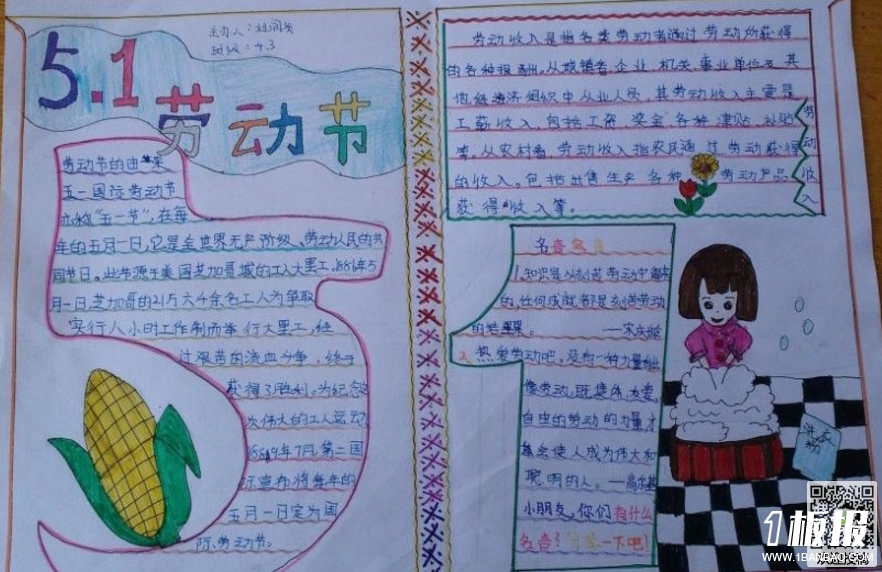 5.1
劳动节
主办人：
班级：4.3
劳动节的由来
五一国际劳动节
亦称"五一节"，在每
年的五月一日，它是全世界无产阶级、劳动人民的共
同节日。此节源于美国芝加哥城的工人大罢工。1886年5
月一日芝加哥的21万六千余名工人为争取
实行八小时工作制而举行大罢工，经
过艰苦的流血斗争，终于
获得了胜利。为纪念这
次伟大的工人运动
1889年7月，第二国
际宣布将每年的
五月一日定为国
际劳动节。
劳动收入是指各类劳动者通过劳动所获得
的各种报酬。从城镇看企业 机关 事业单位及其
他经济组织中从业人员，其劳动收入主要是
工薪收入，包括工资 奖金 各种津贴，补贴
等，从农村看，劳动收入指农民通过劳动获得
的收入。包括出售生产各种 劳动产品
获得收入等。
劳动收入
名言
1.知识是从刻苦劳动中得来
的，任何成就都是刻苦劳动
的结果。 —宋庆龄
2.热爱劳动吧。没有一种力量能
像劳动，既集体、友爱、
自由的劳动的力量才
能使人成为伟大和
聪明的人。—高尔基
小朋友，你们有什么
名言？ 一下吧！
洗衣粉
1板报
WWW.1BANBAO.COM
欢迎投稿